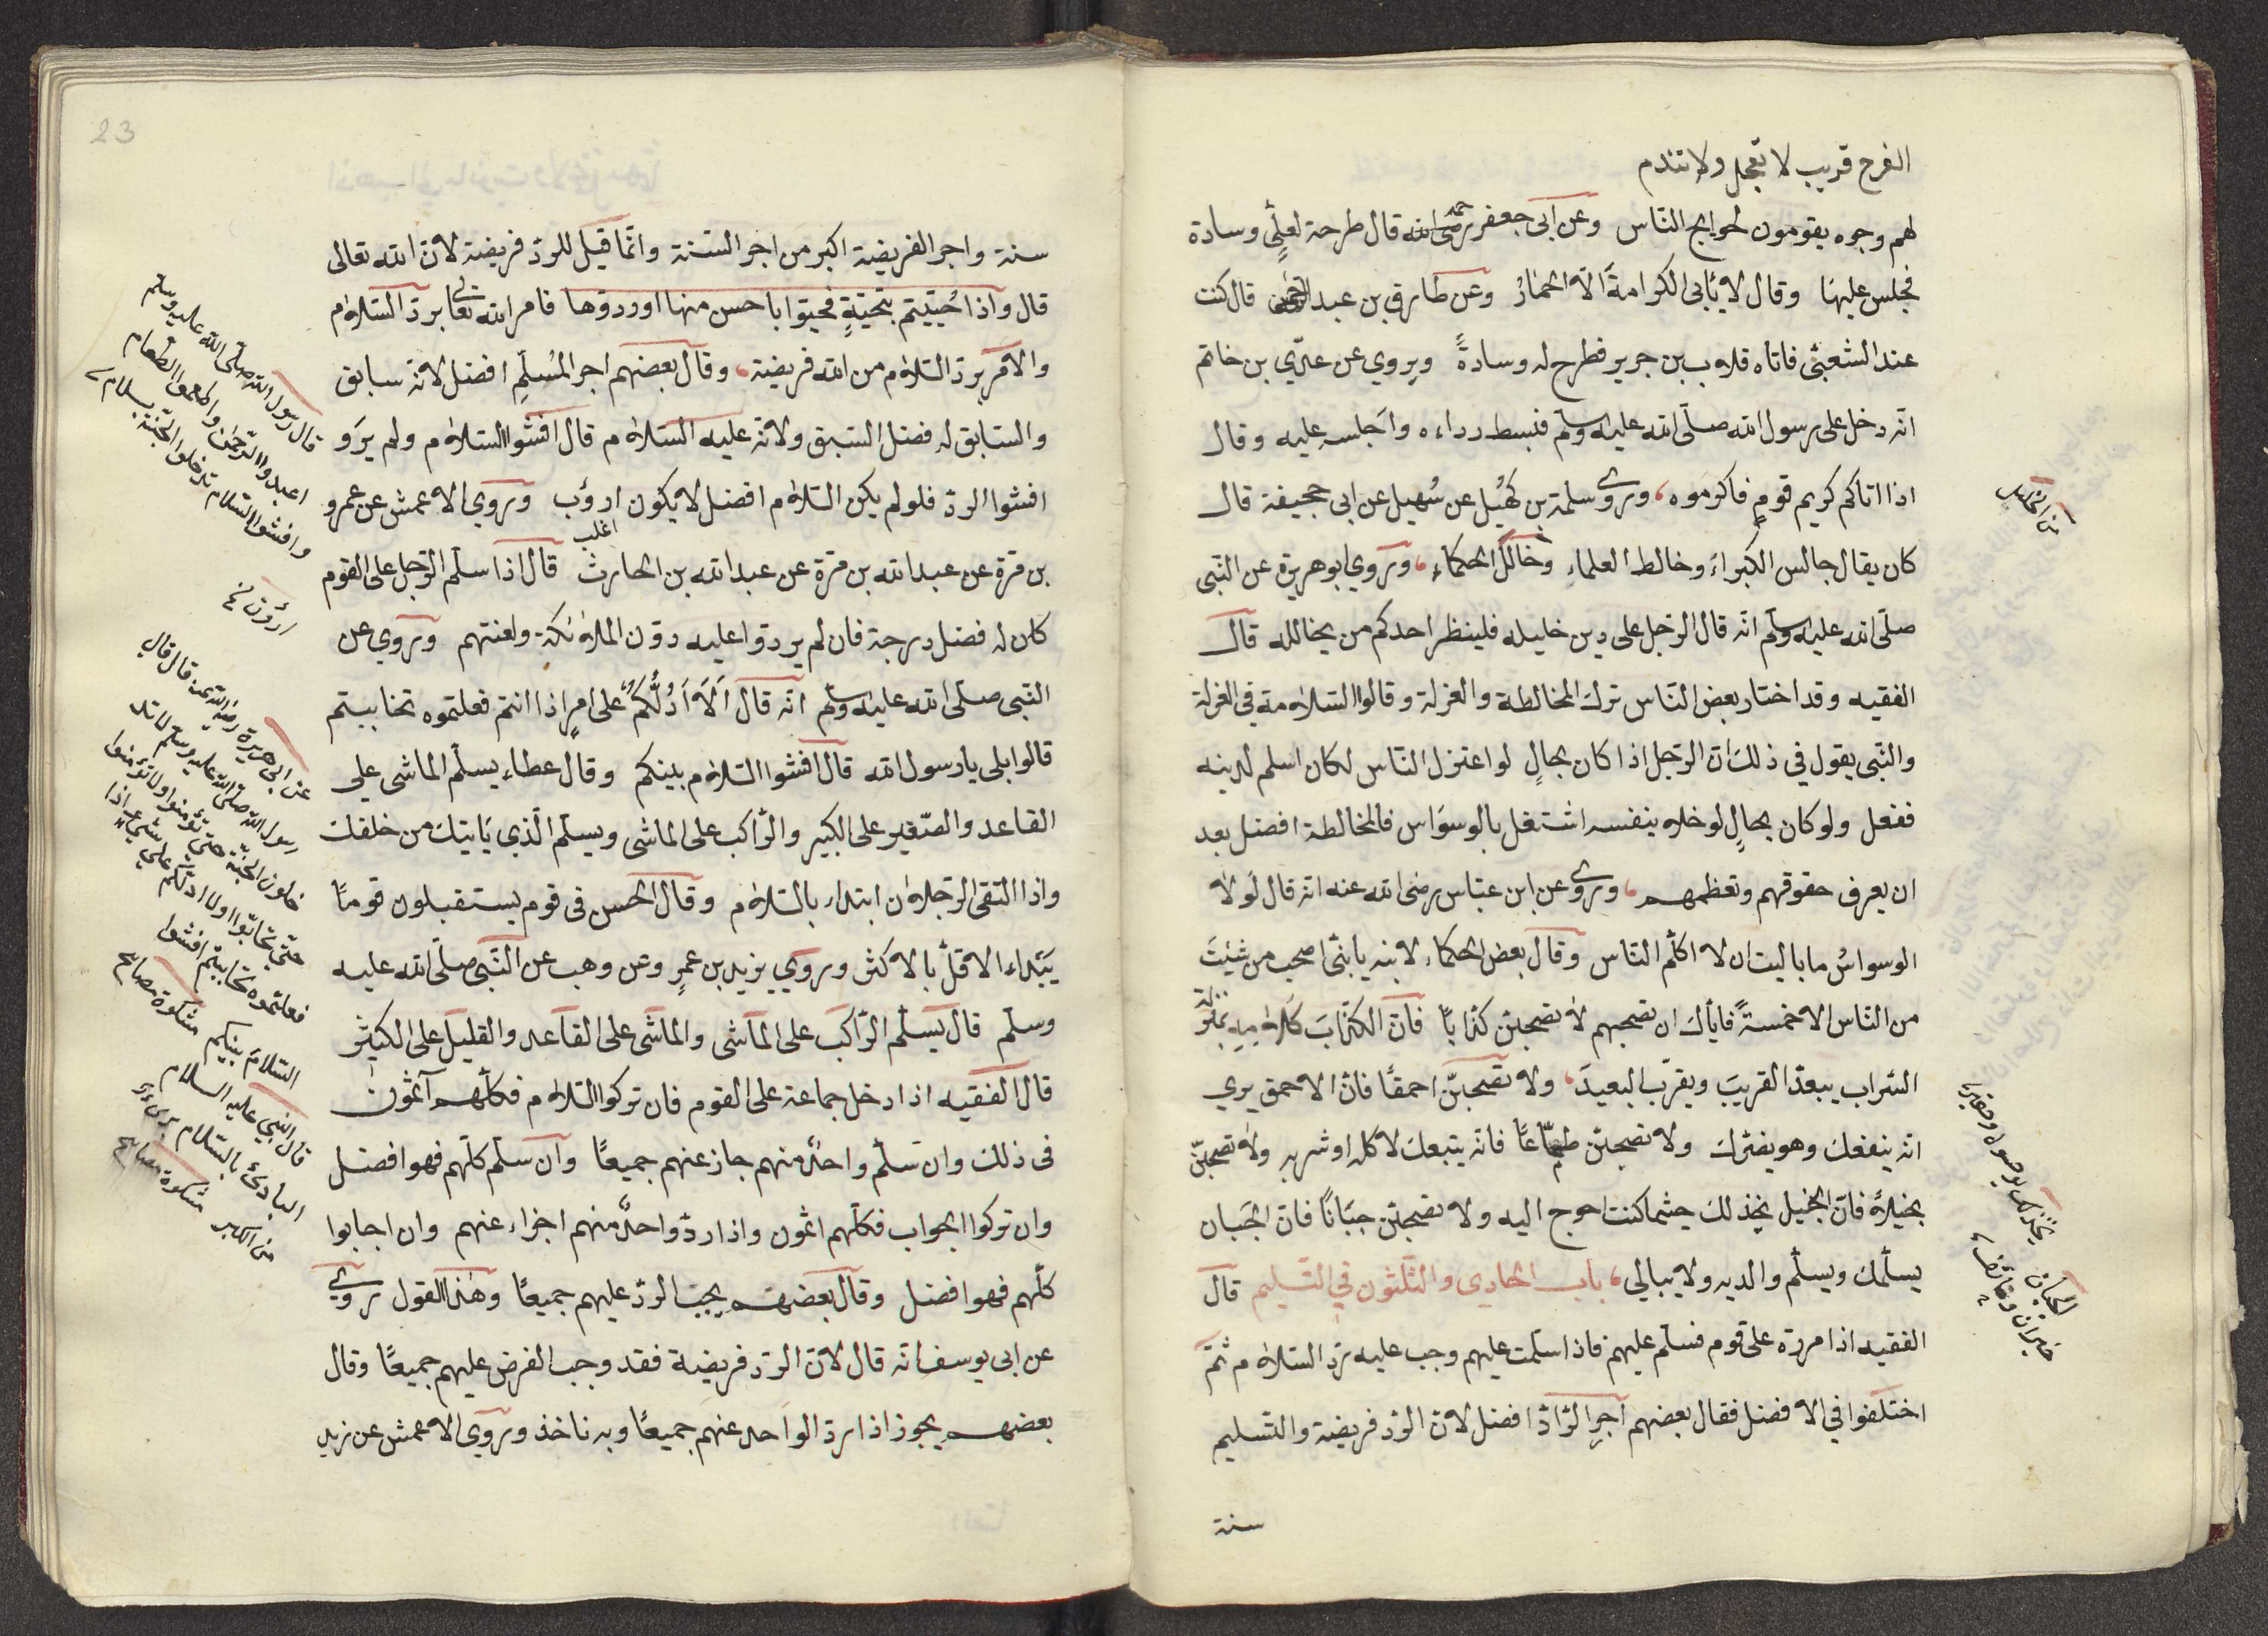 الفرح قريب لا تعجل ولا تندم
لهم وجوه يقومون لحوايج الناس وعن ابى جعفر رضى الله قال طرحة لعلىٍّ وسادة
فجلس عليها وقال لا يأبى الكرامةَ الّا الحمارُ وعن طارق بن عبد الرحمن قال كنت
عند الشعبىّ فاتاه قلاب بن جرير فطرح له وسادةً ويروي عن عدّي بن خاتم
انّه دخل على رسول الله صلّى الله عليه وسلّم فبسط رداءه واَجلسه عليه وقال
اذا اتاكم كريم قومٍ فاكرموه وروى سلمة بن كهُيل عن سُهيل عن ابى جحيفة قال
كان يقال جالس الكبراءَ وخالط العلماءِ وخالل الحكماءِ وروي ابو هريرة عن النّبى
صلّى الله عليه وسلّم انّه قال الرّجل على دين خليله فلينظر احدكم من يخالله قال
الفقيه وقد اختار بعض النّاس ترك المخالطة والعزلة وقالوا السّلامة في العزلة
والنّبى يقول في ذلك انّ الرّجل اذا كان بحالٍ لو اعتزل النّاس لكان اسلم لدينه
ففعل ولو كان بحالٍ لو خلاه بنفسه اشتغل بالوسوَاس فالمخالطة افضل بعد
ان يعرف حقوقهم وتعظمهم وروى عن ابن عبّاس رضى الله عنه انّه قال لَو لا
الوسواسُ ما باليت ان لا اكلّم النّاس وقال بعض الحكماء لابنه يا بنىّ اصحب من شئتَ
من النّاس الا خمسةً فايّاك ان تصحبهم لا تصحبنّ كذّابًا فانّ الكذّابَ كلامهِ بمنزلة
السّراب يبعدّ القريبَ ويقرّب البعيدَ ولا تصحبنّ احمقًا فانّ الاحمق يري
انّه ينفعك وهو يضرّك ولا تصحبنّ طمّاعًا فانّه يتبعك لاكله او شربه ولا تصحبنّ
بخيلاً فانّ البخيل يخذلك حيثما كنت احوج اليه ولا تصحبنّ جبّانًا فانّ الجَبان
يسلّمك ويسلّم والديه ولا يبالي باب الحادي والثّلثون في التّسليم قال
الفقيه اذا مررة على قوم فسلّم عليهم فاذا سلّمت عليهم وجب عليه ردّ السّلام ثمّ
اختلفوا في الافضل فقال بعضهم اجرِ الرّادّ افضل لانّ الرّد فريضة والتّسليم
سنة
يخذلك
الجبان
23
سنة واجر الفريضة اكبر من اجر السّنة وانّما قيل للردّ فريضة لانّ الله تعالى
قال واذا حُيّيتم بتحيّةٍ فحيّوا باحسن منها او ردّوها فامر الله تعالى بردّ السّلام
والامر بردّ السّلام من الله فريضة وقال بعضهم اجر المُسلّمِ افضل لانّه سابق
والسّابق له فضل السّبق ولانّه عليه السّلام قال افشوا السّلام ولم يرَو
افشوا الردّ فلو لم يكن السّلام افضل لا يكون اروَب وروي الاعمش عن عمرو
اغلب
بن مرّة عن عبد الله بن مرّة عن عبد الله بن الحارث قال اذا سلّم الرّجل على القوم
كان له فضل درجة فان لم يردّوا عليه ردّت الملائكة ولعنتهم وروي عن
النّبى صلّى الله عليه وسلّم انّه قال اَلَا اَدُلُّكمُ على امرٍ اذا انتم فعلتموه تحاببتم
قالوا بلى يا رسول الله قال افشوا السّلام بينكم وقال عطاء يسلّم الماشى على
القاعد والصّغير على الكبير والرّاكب على الماشى ويسلّم الّذي يَاتيك من خلفك
واذا التقى الرّجلان ابتداء بالسّلام وقال الحسن في قوم يستقبلون قومًا
يَبتداء الاقلّ بالاكثر وروي يزيد بن عمرٍ وعن وهب عن النّبى صلّى الله عليه
وسلّم قال يسلّم الرّاكب على الماشى والماشى على القاعد والقليل على الكثير
قال الفقيه اذا دخل جماعة على القوم فان تركوا السّلام فكلّهم آثمون
فى ذلك وان سَلّم واحدٌ منهم جاز عنهم جميعًا وان سلّم كلّهم فهو افضل
وان تركوا الجواب فكلّهم اثمون واذا ردّ واحدٌ منهم اجزاء عنهم وان اجابوا
كلّهم فهو افضل وقال بعضهم يجب الردّ عليهم جميعًا وهذا القول روي
عن ابى يوسف انّه قال لانّ الردّ فريضة فقد وجب الفرض عليهم جميعًا وقال
بعضهم يجوز اذا ردّ الواحد عنهم جميعًا وبه ناخذ وروي الاعمش عن زيد
قال رسول الله صلّى الله عليه وسلم
اعبدوا الرّحمن واطعموا الطّعام
وافشوا السّلام تدخلوا الجنّة بسلام
عن ابى هريرة رضى الله عنه قال قال
رسول الله صلّى الله عليه وسلم لا تد
خلون الجنّة حتّى تؤمنوا ولا تؤمنوا
حتّى تحابّوا اولا ادلّكم على شيء اذا
فعلتموه تحاببتم افشوا
السّلام بينكم مشكوة مصابيح
قال النّبى عليه السلام
البادئ بالسّلام برىء
من الكبر مشكوة مصابيح